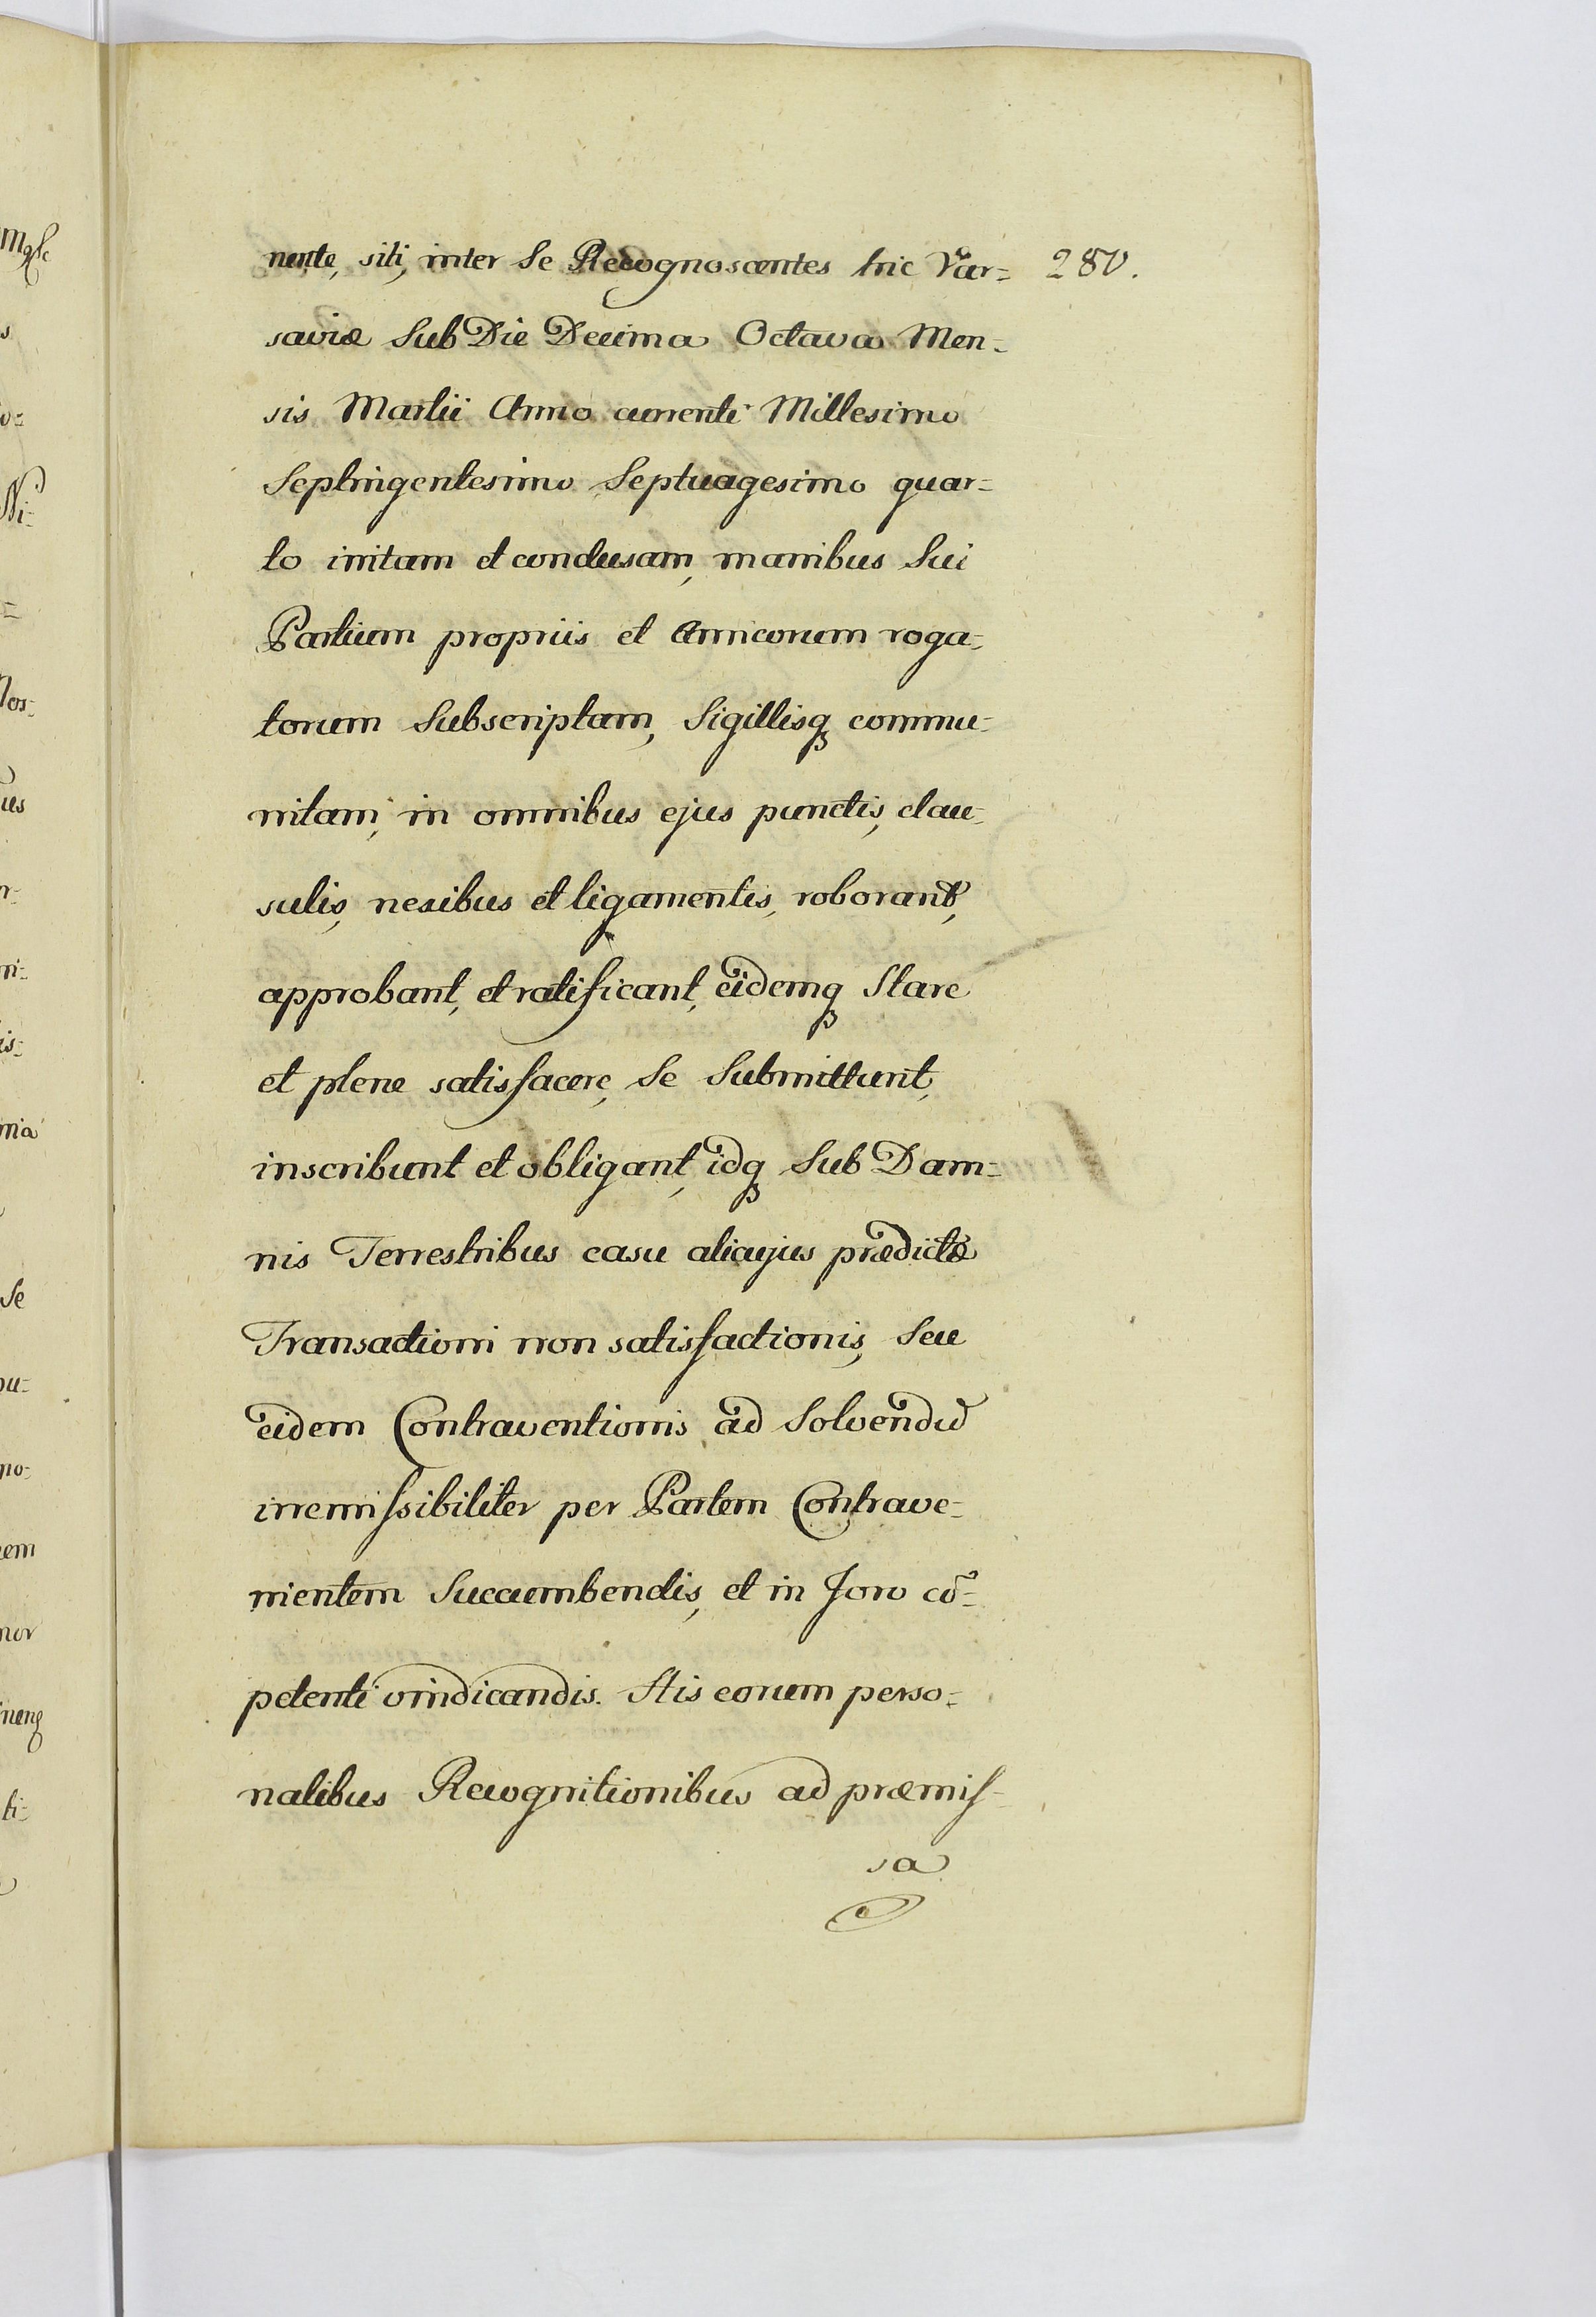 nente, siti, inter Se Recognoscentes hic Var= 280.
saviæ Sub Die Decima Octava Men=
sis Martii Anno currenti Millesimo
Septingentesimo Septuagesimo quar=
to initam et conclusam, manibus Sui
Partium propriis et Amicorum roga=
torum Subscriptam, Sigillisq commu=
nitam, in omnibus ejus punctis, clau=
sulis, nexibus et ligamentis, roborant,
approbant, et ratificant, eidemq Stare
et plene satisfacere, Se Submittunt,
inscribunt et obligant, idq Sub Dam=
nis Terrestribus casu alicujus prædictæ
Transactioni non satisfactionis, Seu
eidem Contraventionis ad Solvendũ
irremissibiliter per Partem Contrave=
nientem Succumbendis, et in Foro cõ=
petenti vindicandis. Stis eorum perso=
nalibus Recognitionibus ad præmis=
sa